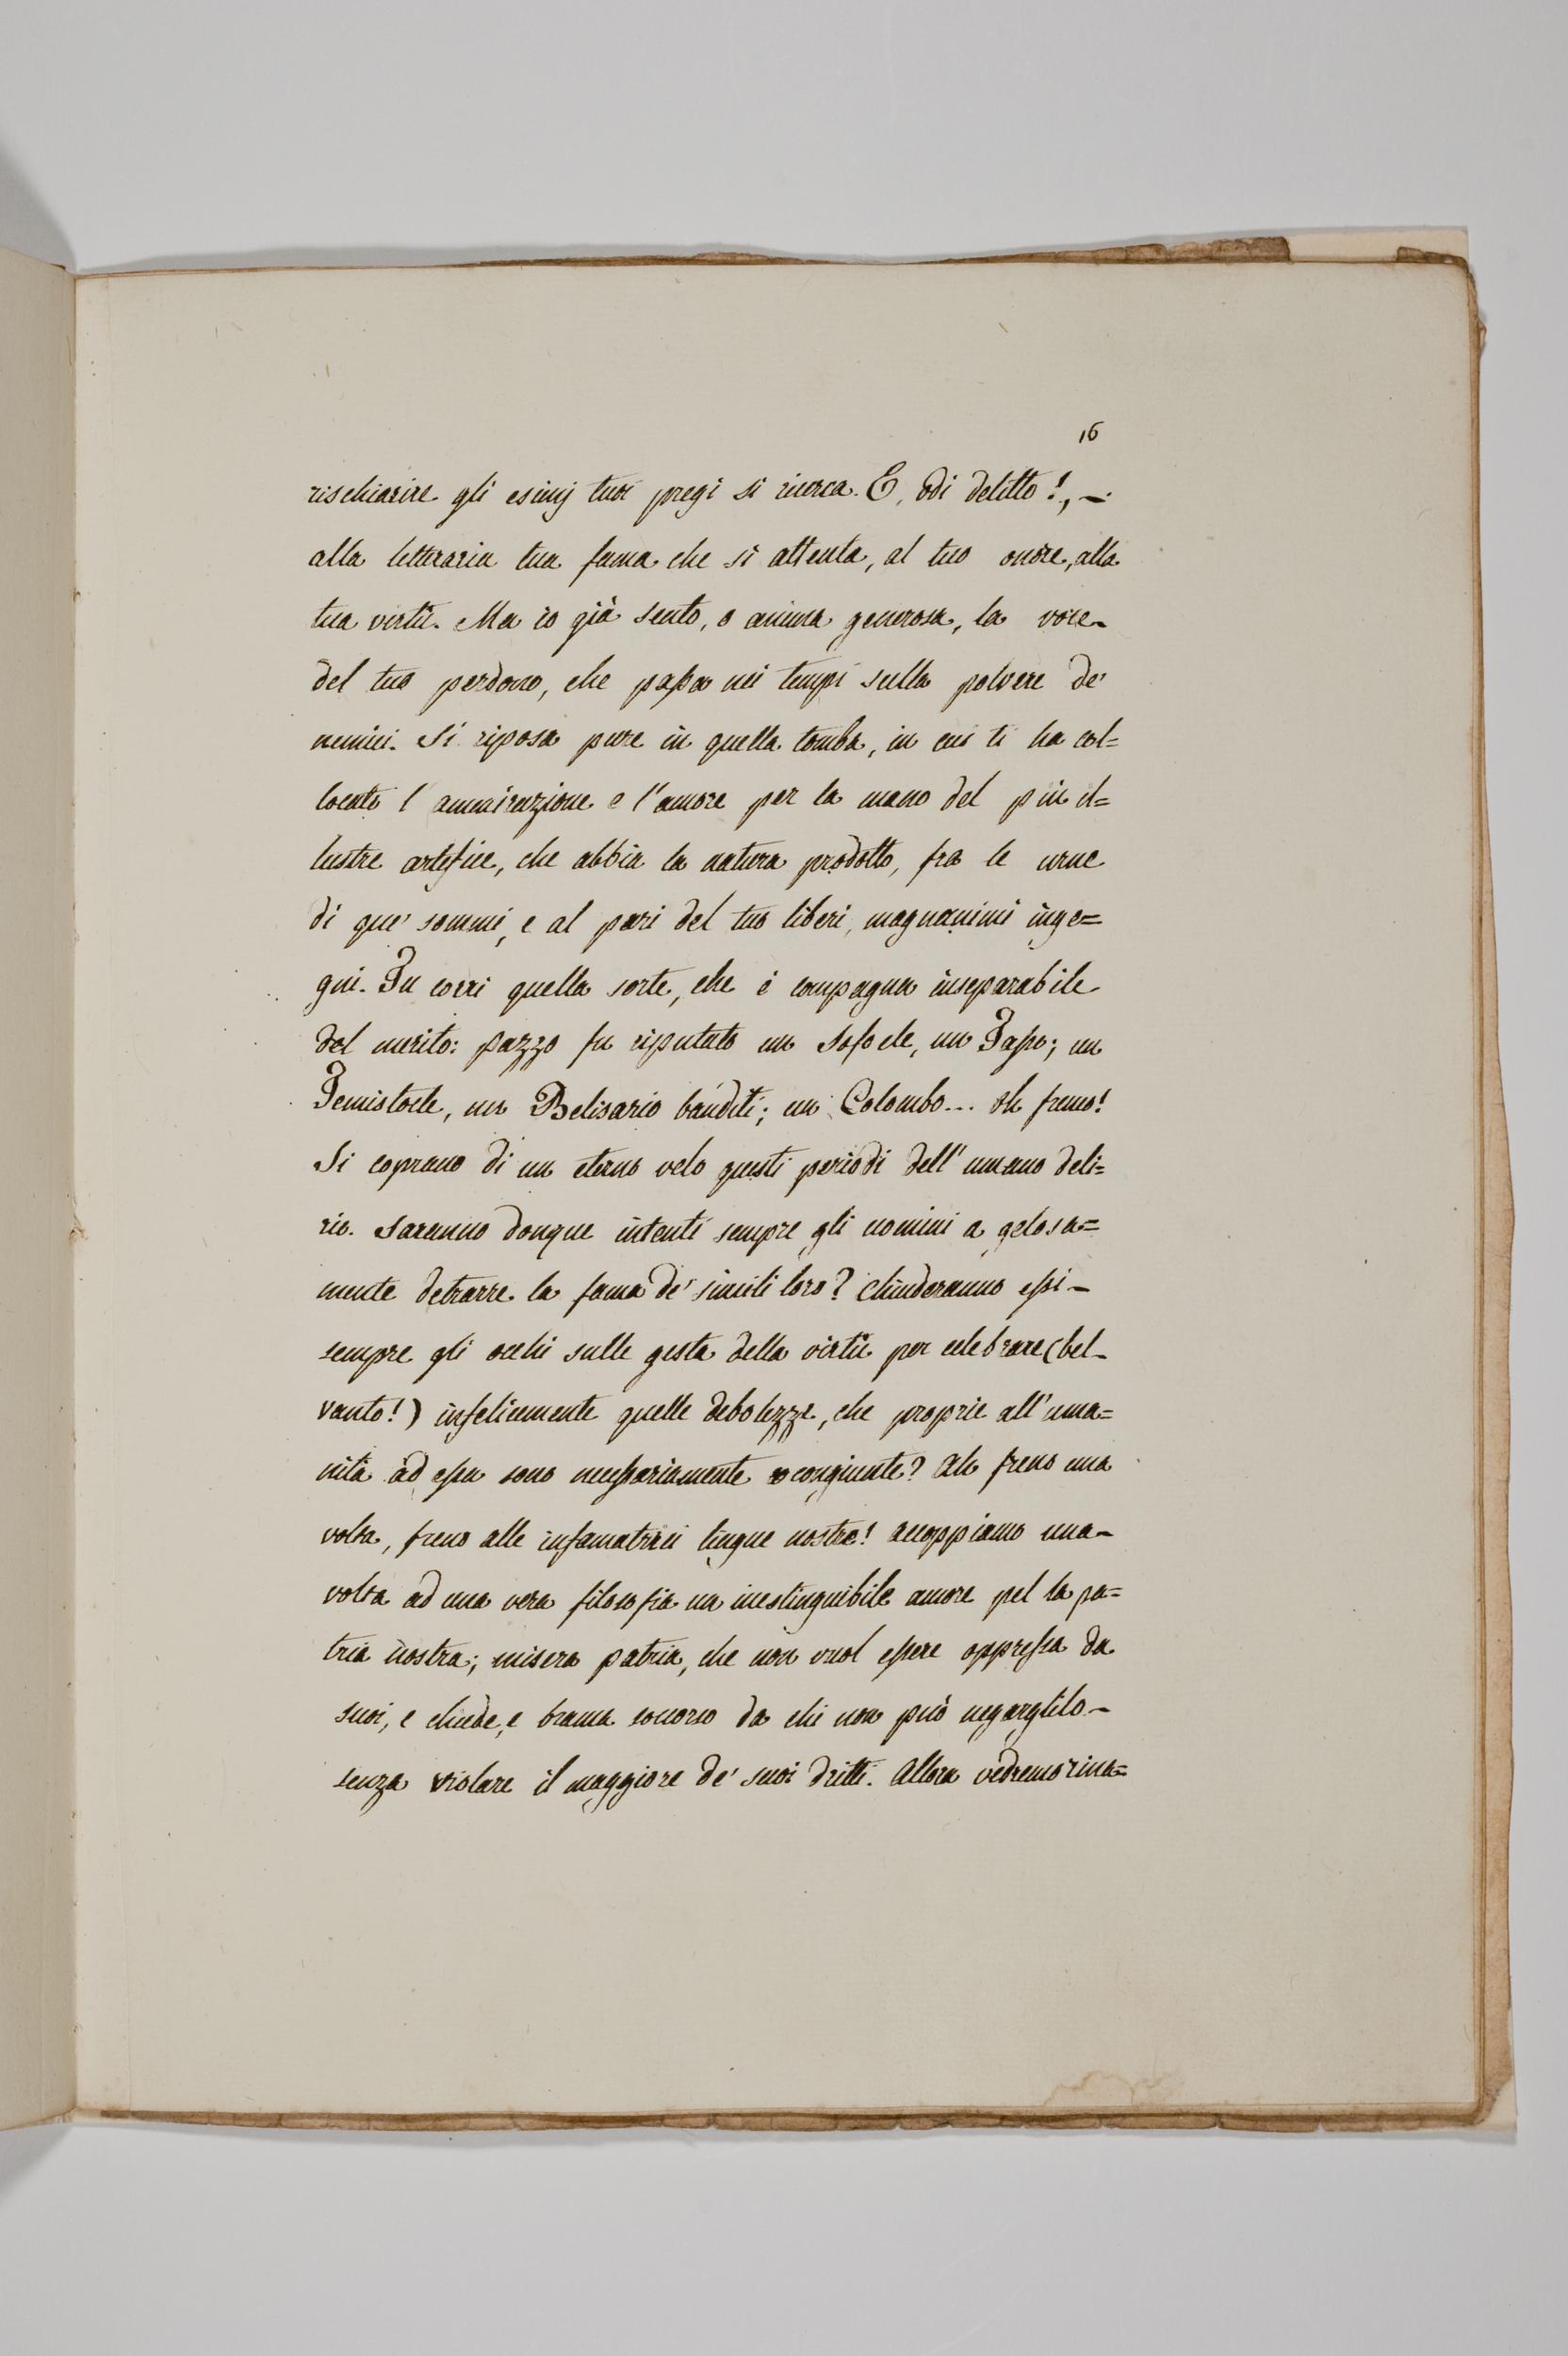 16
rischiarire gli esimj tuoi pregi si ricerca. E, odi delitto!, –
alla letteraria tua fama che si attenta, al tuo onore, alla
tua virtù. Ma io già sento, o anima generosa, la voce –
del tuo perdono, che passa nei tempi sulla polvere de'
nemici. Si riposa pure in quella tomba, in cui ti ha col=
locato l'ammirazione e l'amore per la mano del più il=
lustre artefice, che abbia la natura prodotto, fra le urne
di que' sommi, e al pari del tuo liberi, magnanimi inge=
gni. Tu corri quella sorte, che è compagna inseparabile
del merito: pazzo fu riputato un Sofocle, un Tasso; un
Temistocle, un Belisario banditi; un Colombo... oh fremo!
Si coprano di un eterno velo questi periodi dell'umano deli=
rio. Saranno donque intenti sempre gli uomini a gelosa=
mente detrarre la fama de' simili loro? Chiuderanno essi –
sempre gli occhi sulle gesta della virtù per celebrare (bel –
vanto!) infelicemente quelle debolezze, che proprie all'uma=
nità ad essa sono necessariamente congiunte? Ah freno una
volta, freno alle infamatrici lingue nostre! accoppiamo una –
volta ad una vera filosofia un inestinguibile amore pel la pa=
tria nostra; misera patria, che non vuol essere oppressa da
suoi, e chiede, e brama soccorso da chi non può negarglilo –
senza violare il maggiore de' suoi dritti. Allora vedremo rina=